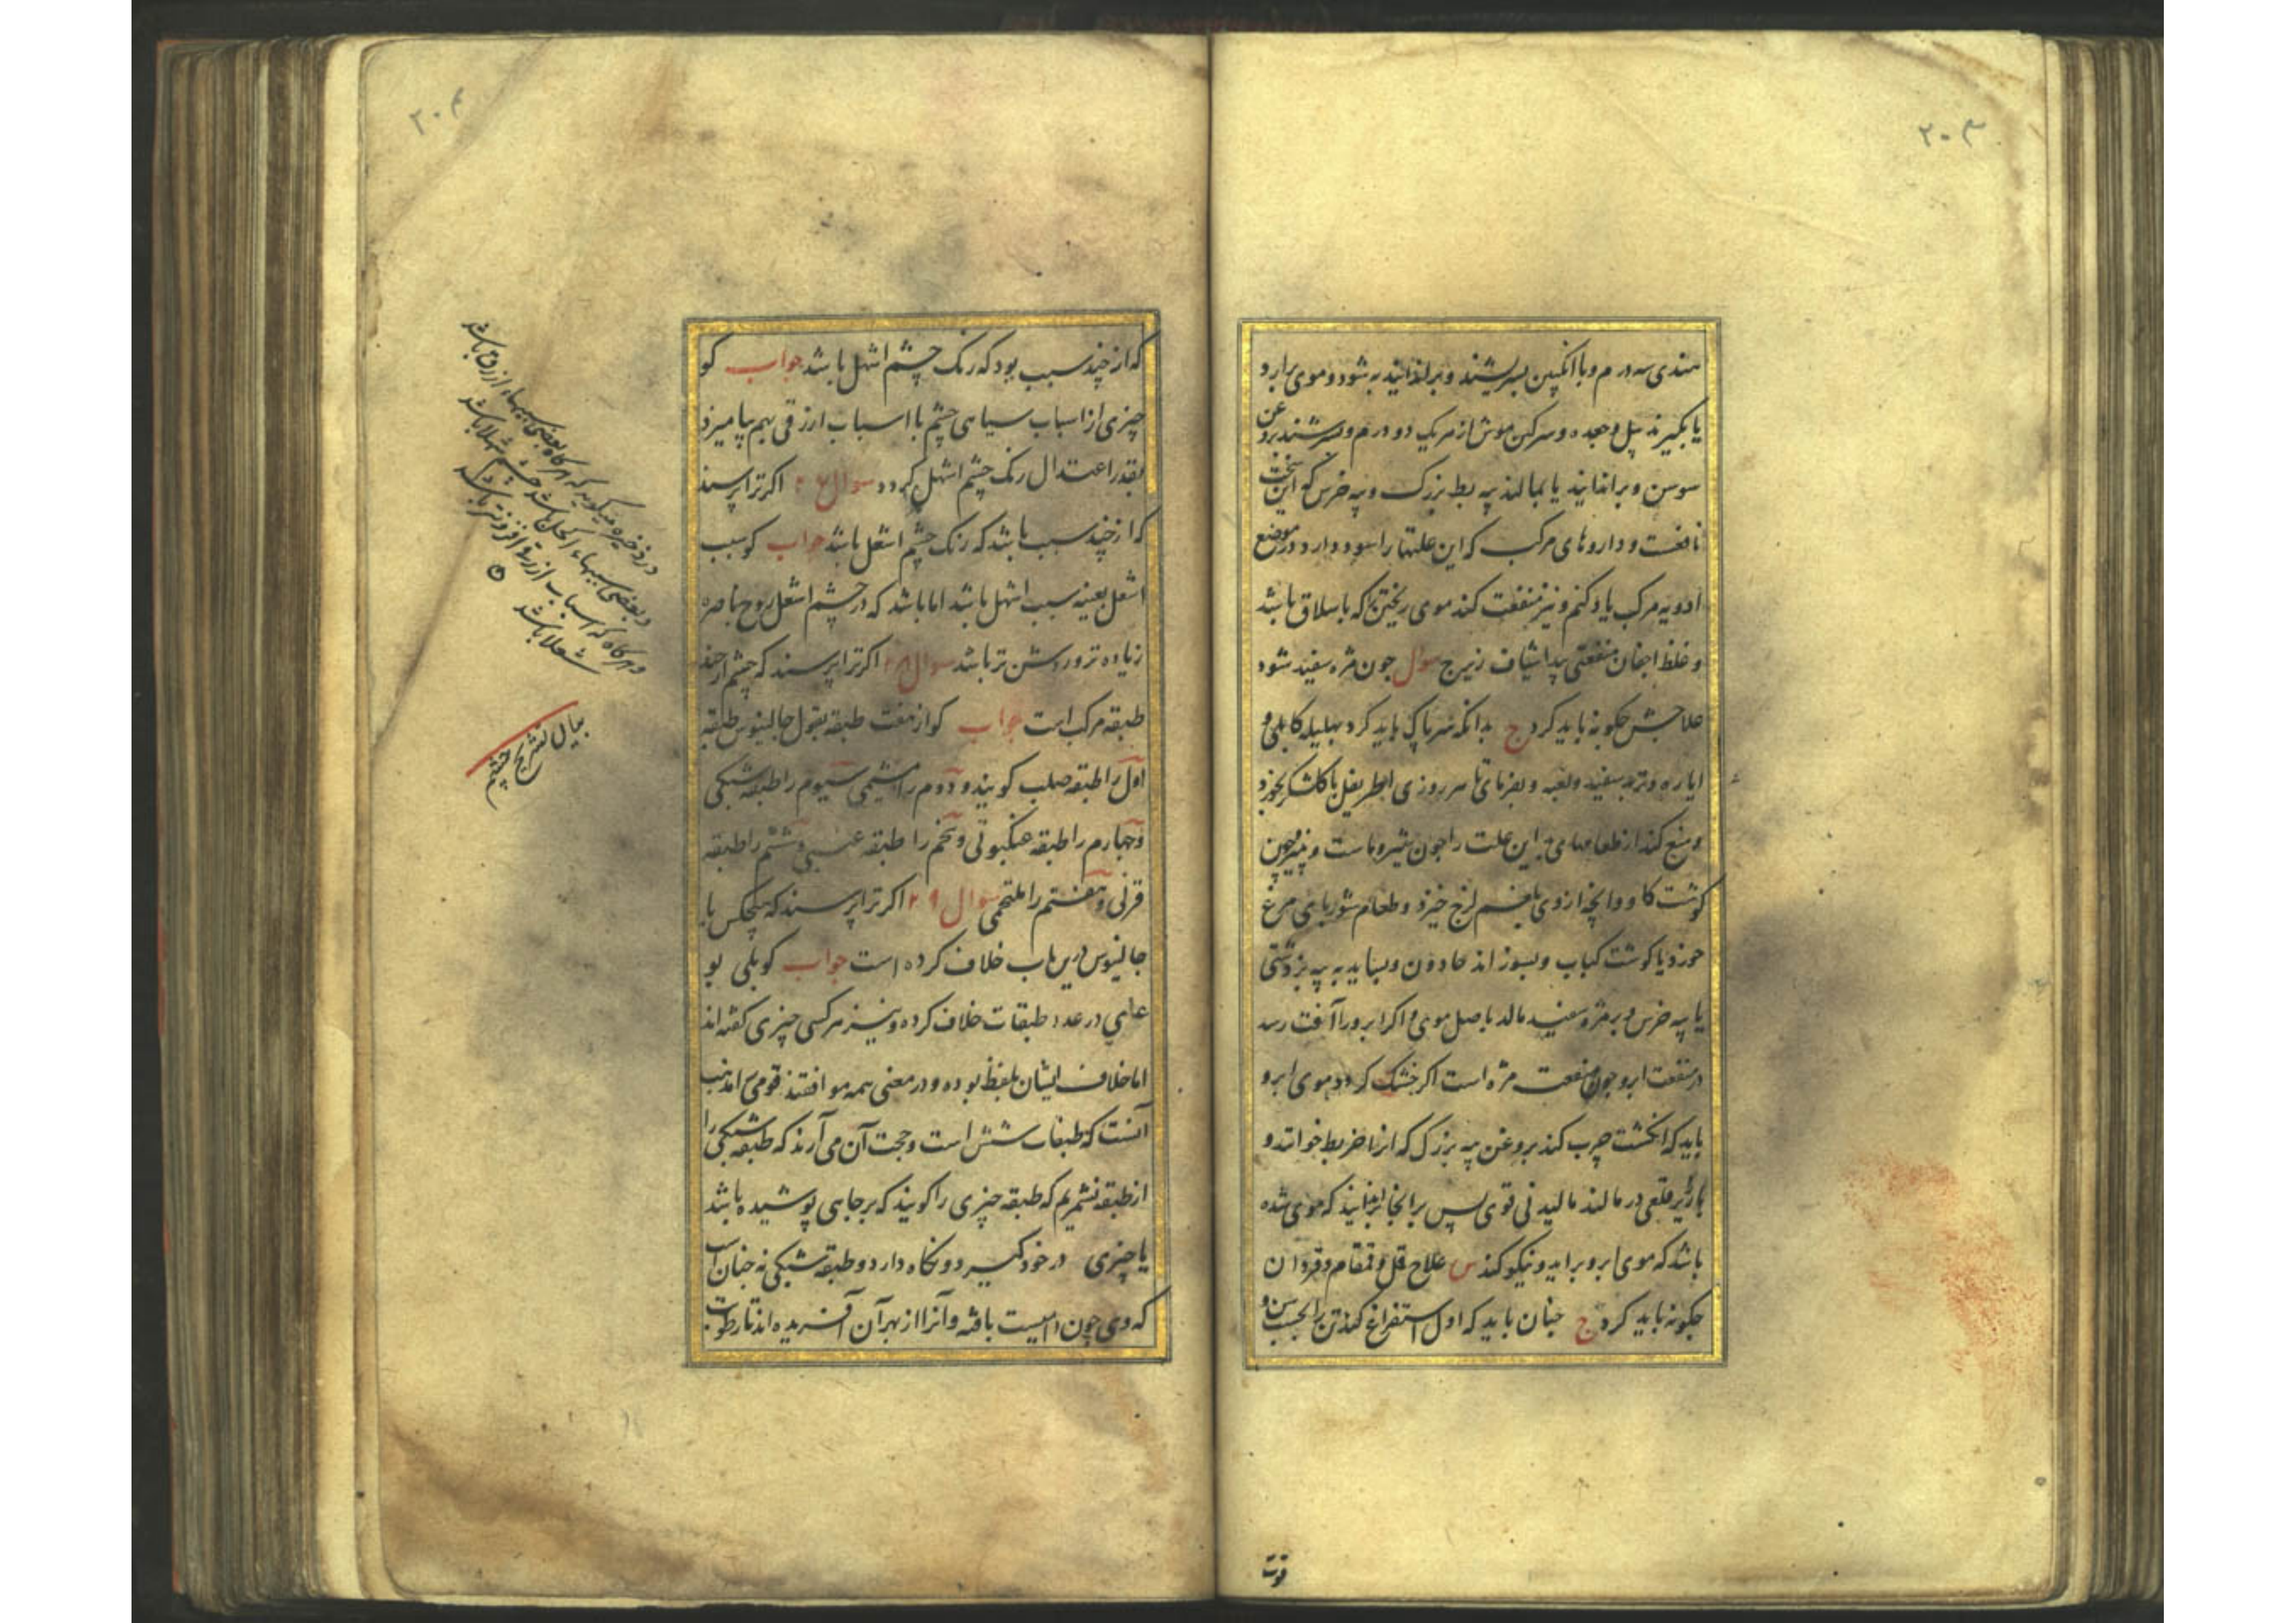 ۲۰۳
هندی سه درم و با انگبین بسریشند و براندایند به شود و موی برارد
یا بگیرند پیل و هجده و سرکین موش از هر یک دو درم و بسرشند بروغن
سوسن و براندایند یا بمالند پیه بط بزرک و پیه خرس کو این سخت
نافعست و داروهای مرکب که این علتها را سود دارد در موضع
ادویه مرکب یاد کنم و نیز منفعت کند موی ریختن که با سلاق باشد
و غلظ اجفان منفعتی پیدا شیاف زیرج سوال جون مژه سفید شود
علاجش جکونه باید کرد ج بدانکه سر پاک باید کرد بهلیله کابلی و
ایاره و تربد سفید ولعبه و بفرمای تا هر روزی اطریفل با کلشکر بخورد
و منع کند از طعامهای این علت را جون شیر و ماست و پنیر و جون
کوشت کاو و انچه از وی بلغم لزج خیزد و طعام شوربای مرغ
خورد یا کوشت کباب و بسوزاند حادون و بساید به پیه بز دشتی
یا پیه خرس و بر مژه سفید مالد با صل موی و اکر ابرو را آفت رسد
در منفعت ابرو جون منفعت مژه است اکر خشک کردد موی ابرو
باید که انکشت جرب کند بروغن پیه بزرک که انرا خربط خوانند و
بارزیر قلعی در مالند مالیدنی قوی پس بر انجا براندایند که موی شده
باشد که موی ابرو براید و نیکو کند س علاج قمل و قمقام و قردان
جکونه باید کرد ج جنان باید که اول استفراغ کند تن را بحسب سن و
قوت
۲۰۴
که از چند سبب بود که رنک چشم اشهل باشد جواب کو
چیزی از اسباب سیاهی چشم با اسباب ارزقی بهم بیامیزد
بقدر اعتدال رنک چشم اشهل کردد سوال اکر ترا پرسند
که از چند سبب باشد که رنک چشم اشعل باشد جواب کو سبب
اشعل بعینه سبب اشهل باشد اما باشد که در چشم اشعل روح باصره
زیاده تر و روشن تر باشد سوال ۲۸ اکر ترا پرسند که چشم از چند
طبقه مرکب است جواب کو از هفت طبقه بقول جالینوس طبقه
اول را طبقه صلب کویند و دوم را مشیمی سیوم را طبقه شبکی
و چهارم را طبقه عنکبوتی و پنجم را طبقه عنبی و ششم را طبقه
قرنی و هفتم را ملتحمی سوال ۲۹ اکر ترا پرسند که هیچکس با
جالینوس درین باب خلاف کرده است جواب کو بلی بو
علی در عدد طبقات خلاف کرده و نیز هر کسی چیزی کفته اند
اما خلاف ایشان بلفظ بوده و در معنی همه موافقند قومی را مذهب
آنست که طبقات شش است و حجت آن می آرند که طبقه شبکی را
از طبقه نشمریم که طبقه چیزی را کویند که بر جاهی پوشیده باشد
یا چیزی در خود کیرد و نکاه دارد و طبقه شبکی نه جنان است
که وی چون دامیست بافته و آنرا از بهر آن آفریده اند تا رطوبت
در ذخیره میکوید که هرکاه بعضی سببهاء ازرق باشد
و بعضی سببهاء اکحل باشد چشم شهلا باشد
و هرکاه که اسباب ازرق افزونتر باشد
شعلا باشد
بیان تشریح چشم